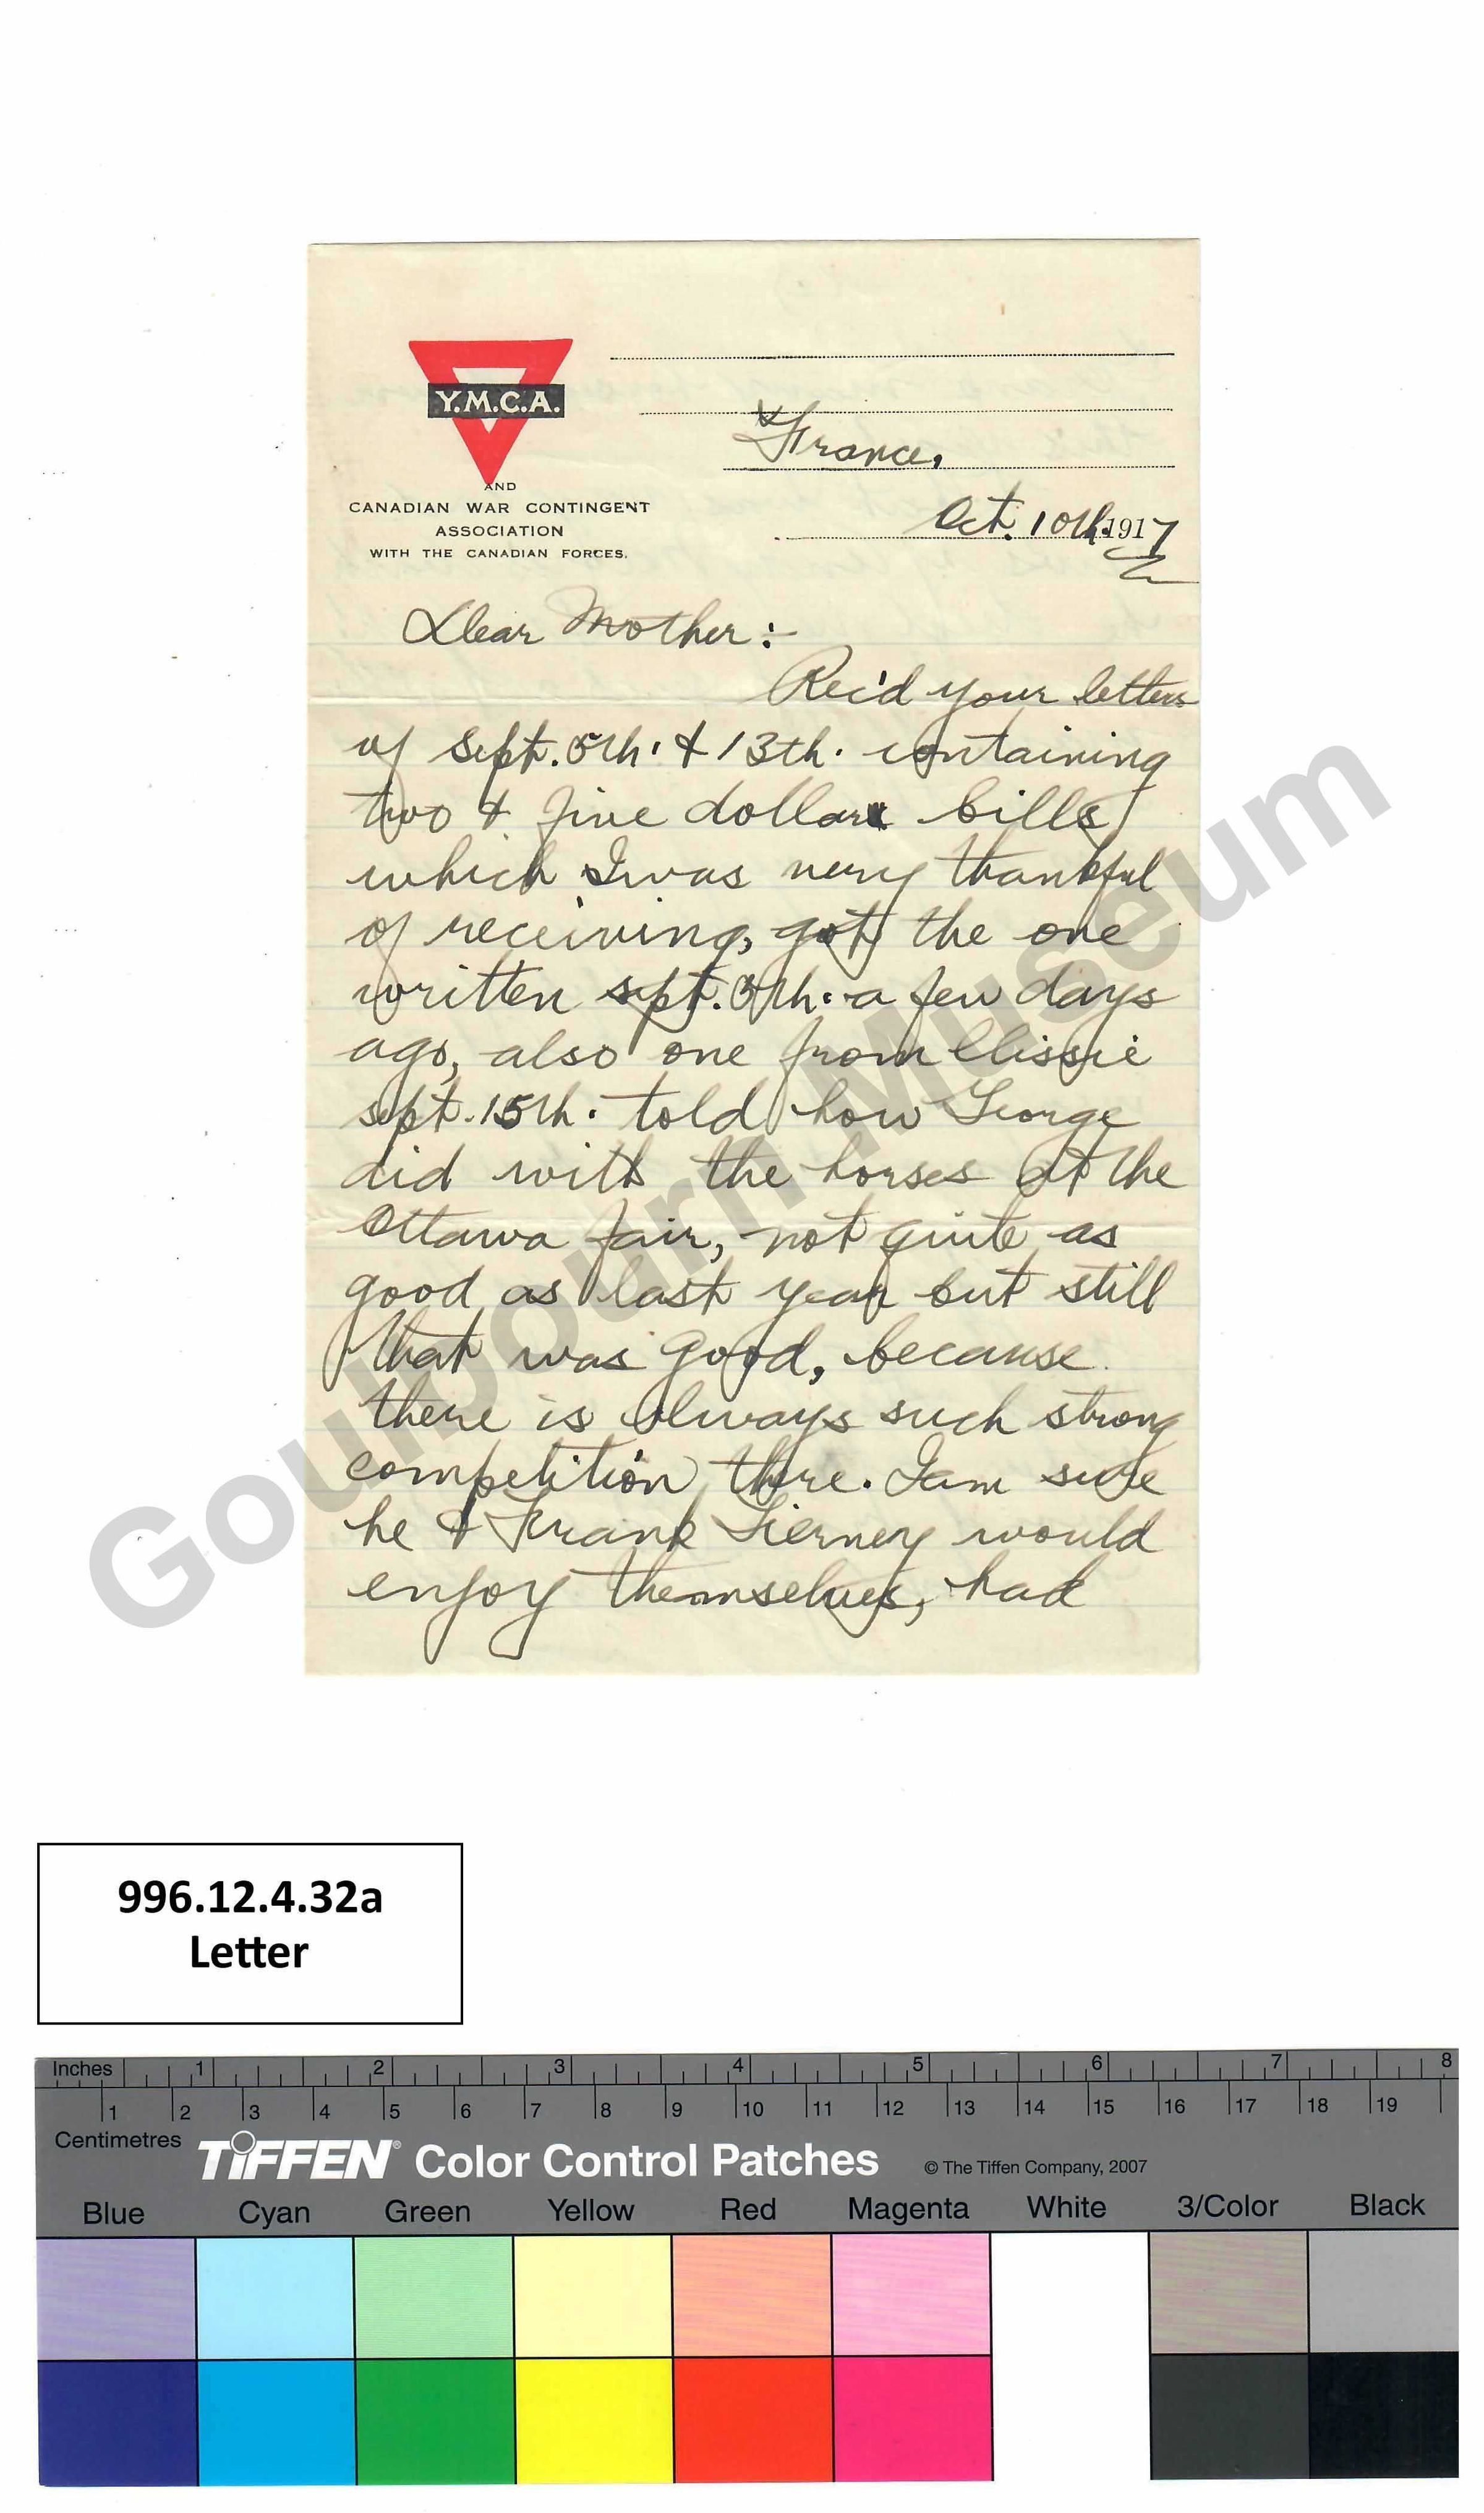 Y.M.C.A.
AND
CANADIAN WAR CONTINGENT
ASSOCIATION
WITH THE CANADIAN FORCES.
France,
Oct. 10th. 1917
Dear Mother:-
Rec'd your letters
of Sept. 5th. & 13th. containing
two & five dollar bills
which I was very thankful
of receiving, got the one
written Sept. 5th. a few days
ago, also one from Clissie
Sept. 15th. told how George
did with the horses at the
Ottawa fair, not quite as
good as last year but still
that was good, because
there is always such strong
competition there. I am sure
he & Frank Tierney would
enjoy themselves, had
Goulbourn Museum
996.12.4.32a
Letter
Inches 1 2 3 4 5 6 7 8
1 2 3 4 5 6 7 8 9 10 11 12 13 14 15 16 17 18 19
Centimetres
TIFFEN® Color Control Patches © The Tiffen Company, 2007
Blue Cyan Green Yellow Red Magenta White 3/Color Black